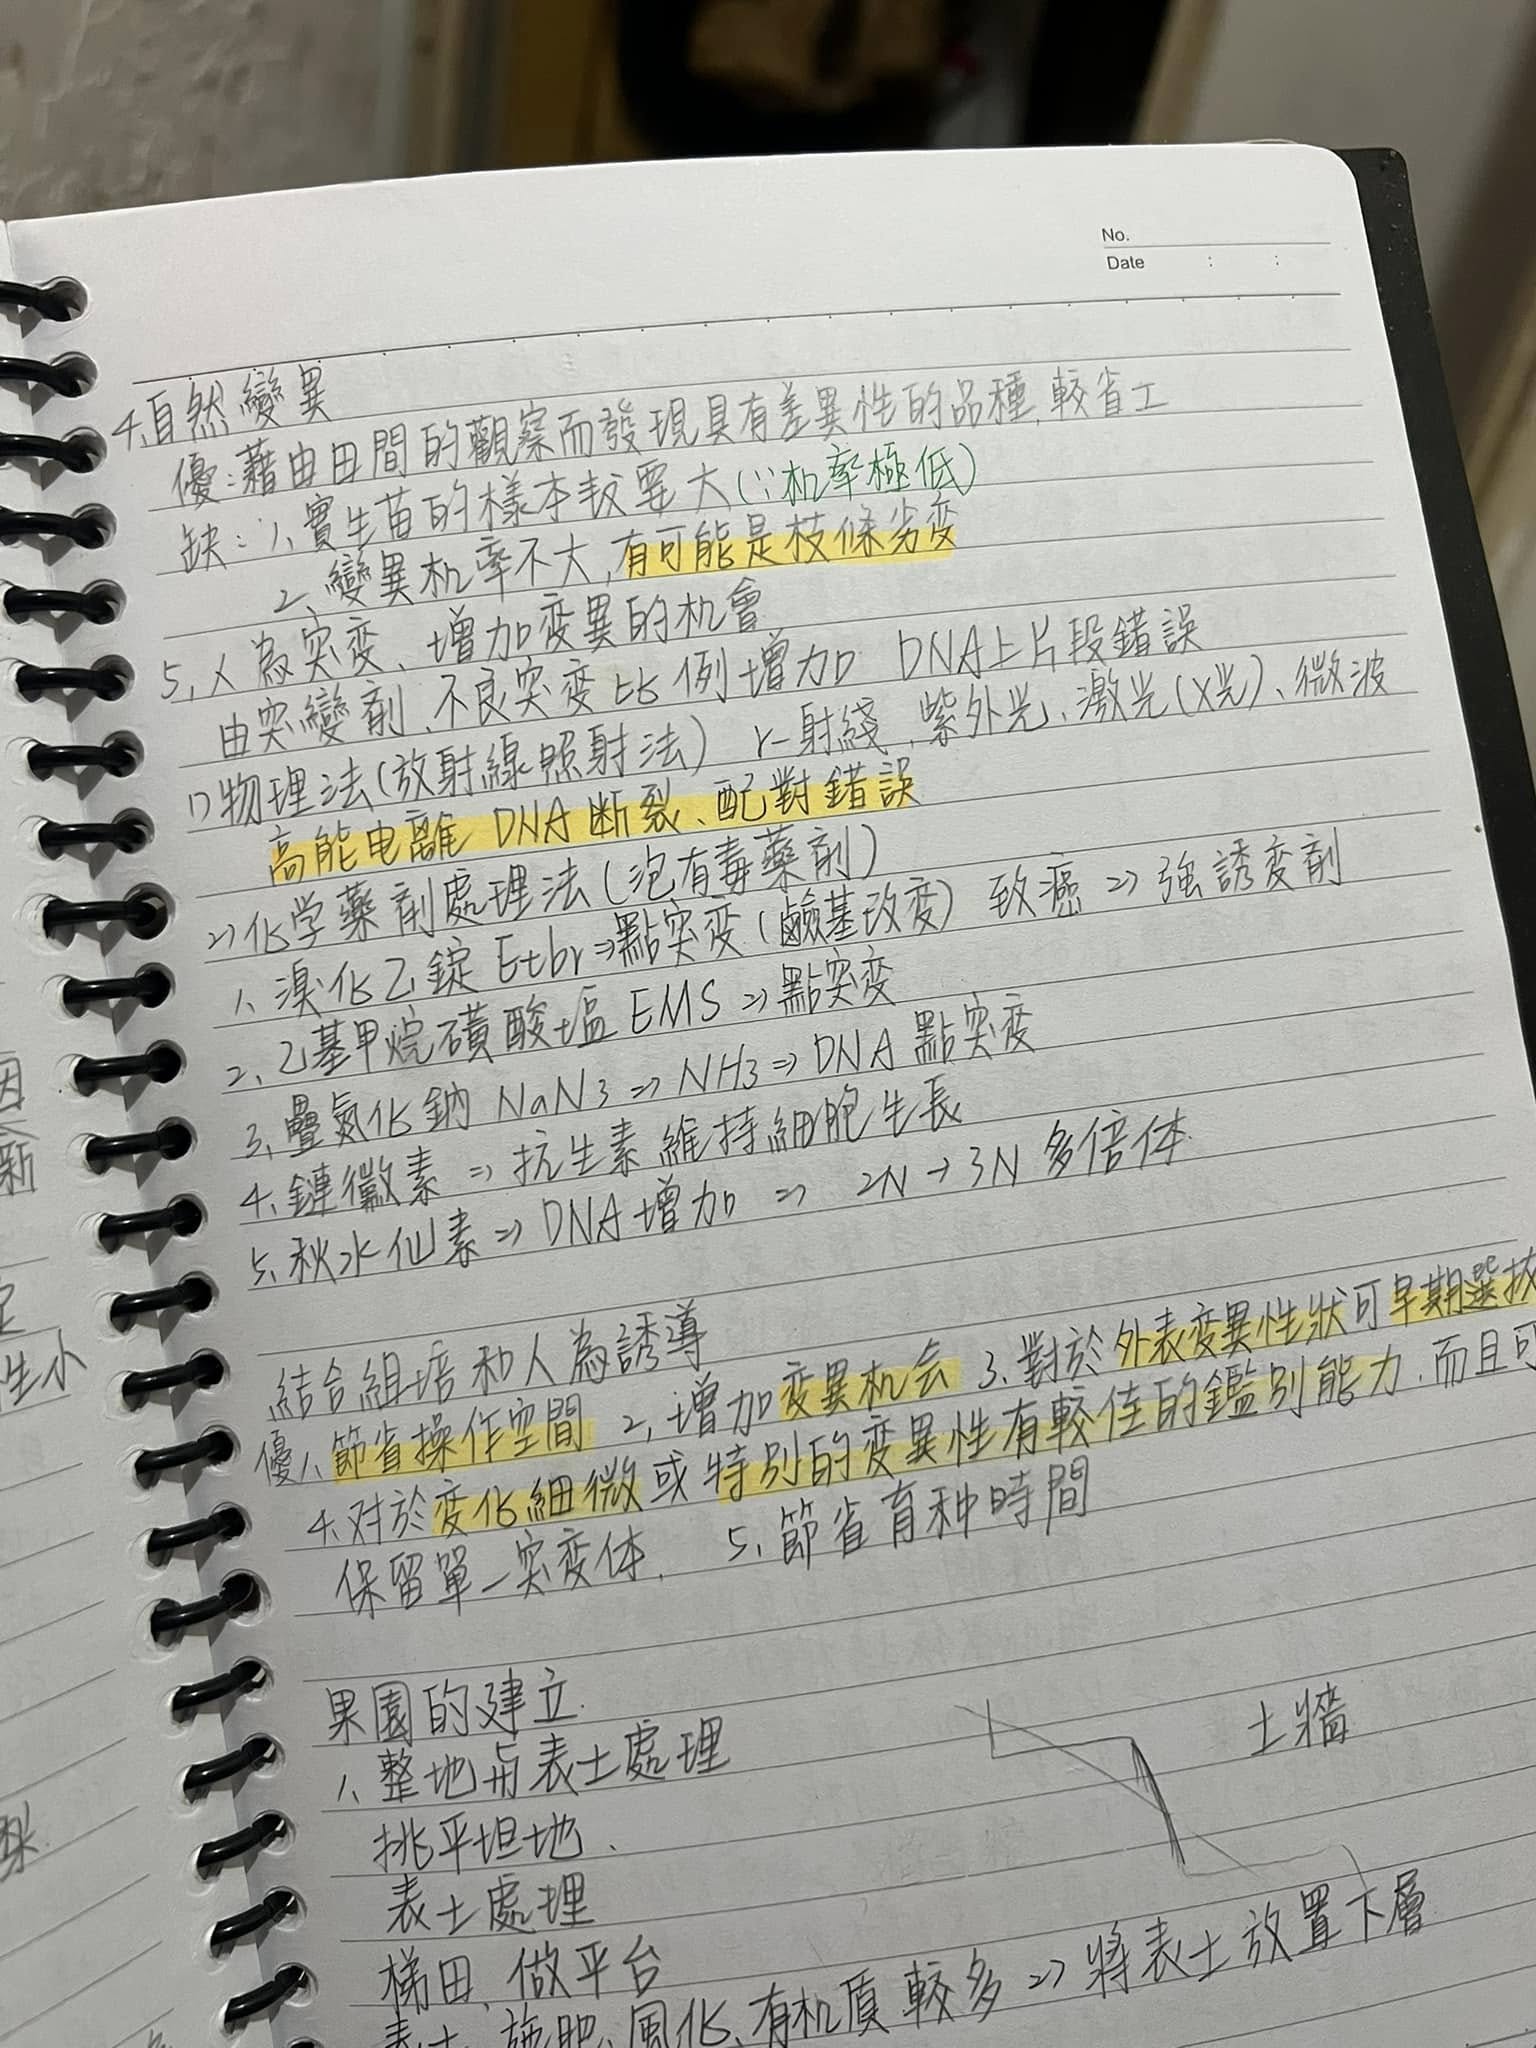 No.
Date : :
4.自然變異
優:藉由田間的觀察而發現具有差異性的品種,較省工
缺:1、實生苗的樣本較要大(∵机率極低)
2、變異机率不大,有可能是枝條劣变
5,人為突变、增加变異的机會
由突變劑、不良突变比例增加 DNA上片段錯誤
1)物理法(放射線照射法) γ-射綫、紫外光、激光(X光)、微波
高能电離 DNA断裂、配對錯誤
2)化学藥劑處理法(泡有毒藥劑)
1、溴化乙錠 Etbr⇒點突变(鹼基改变) 致癌⇒強誘变劑
2、乙基甲烷磺酸塩 EMS⇒點突变
3、疊氮化鈉 NaN3⇒NH3⇒DNA點突变
4、鏈黴素⇒抗生素維持細胞生長
5、秋水仙素⇒DNA增加⇒ 2N→3N 多倍体
結合組培和人為誘導
優1、節省操作空間 2,增加变異机会 3、對於外表变異性狀可早期選拔
4、对於变化細微或特別的变異性有較佳的鑑別能力.而且可
保留單一突变体. 5、節省育种時間
果園的建立.
1、整地与表土處理
挑平坦地、
土牆
表土處理
梯田、做平台
表土、施肥、風化、有机质較多⇒將表土放置下層
因
新
生小